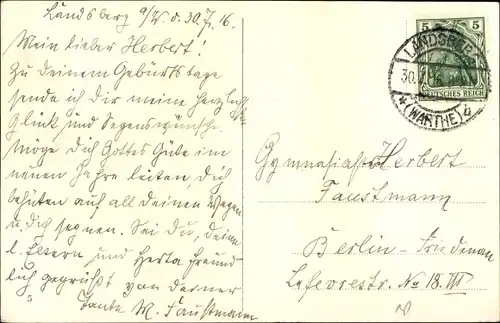 Landsberg a/W. d. 30.7.16.
Mein lieber Herbert!
Zu deinem Geburtstage
sende ich dir meine herzlichsten
Glück und Segenswünsche.
Möge dich Gottes Güte im
neuen Jahre leiten, dich
behüten auf all deinen Wegen
u. dich segnen. Sei du, deine
l. Eltern und Herta freund
lich gegrüßt von deiner
Tante M. Faustmann
5 5
DEUTSCHES REICH
LANDSBERG
30.7.16
*(WARTHE) b
Gymnasiast Herbert
Faustmann
Berlin-Friedenau
Lefevrestr. No 18.III